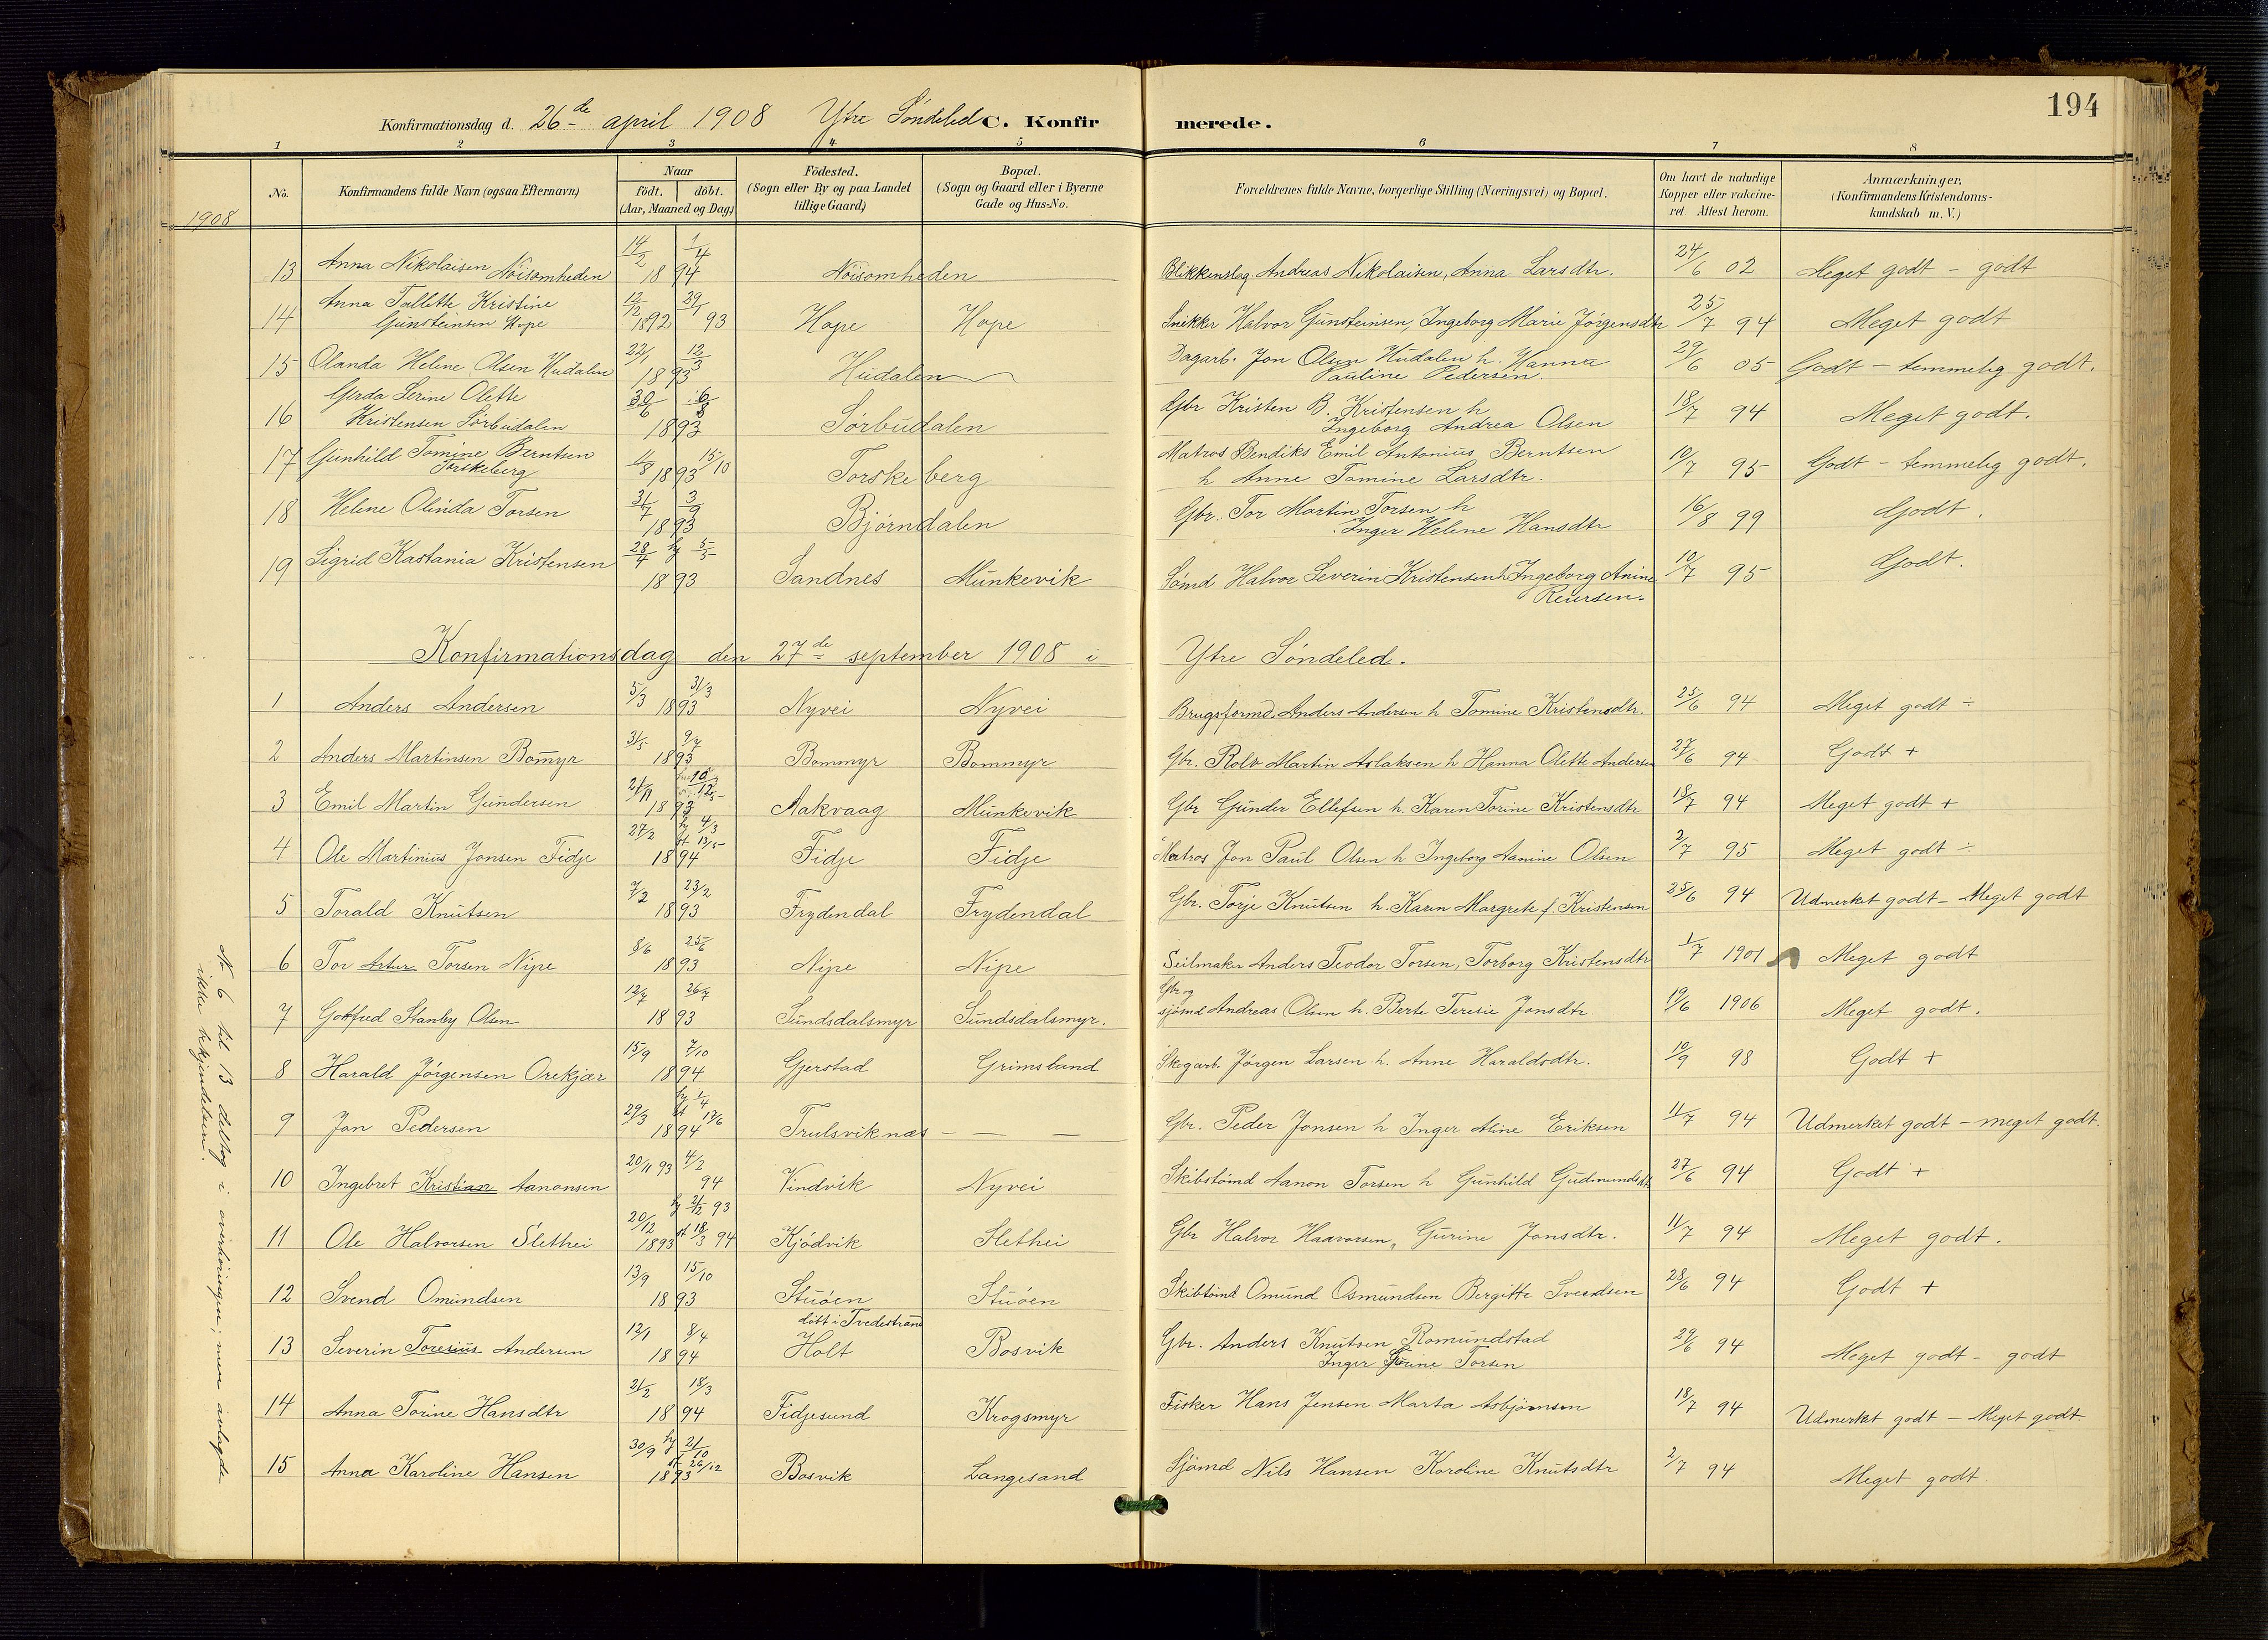 194
Konfirmationsdag d. 26de april 1908 Ytre Søndeled C. Konfirmerede.
1 2 3 4 5 6 7 8
No. Konfirmandens fulde Navn (ogsaa Efternavn) Naar Födested. Bopæl. Forældrenes fulde Navne, borgerlige Stilling (Næringsvei) og Bopæl. Om havt de naturlige Anmærkninger.
födt. döbt. (Sogn eller By og paa Landet (Sogn og Gaard eller i Byerne Kopper eller vakcine- (Konfirmandens Kristendoms-
(Aar, Maaned og Dag) tillige Gaard) Gade og Hus-No. ret Attest herom. kundskab m. V.)
1908
13 Anna Nikolaisen Nöisomheden 14/2 1/4 1894 Nöisomheden Blikkenslag. Andreas Nikolaisen, Anna Larsdtr. 24/6 02 Meget godt - godt
14 Anna Tallette Kristine
Gunsteinsen Hope 12/2 1892 29/1 93 Hope Hope Snikker Halvor Gunsteinsen, Ingeborg Marie Jørgensdtr 25/7 94 Meget godt
15 Olanda Helene Olsen Hudalen 22/1 12/3 1893 Hudalen Dagarb. Jon Olsen Hudalen h. Hanna
Pauline Pedersen. 29/6 05 Godt - temmelig godt.
16 Gerda Serine Olette
Kristensen Sørbudalen 30/6 6/8 1893 Sørbudalen Gbr Kristen B. Kristensen h
Ingeborg Andrea Olsen 18/7 94 Meget godt.
17 Gunhild Tomine Berntsen
Torskeberg 1/8 15/10 1893 Torskeberg Matros Bendiks Emil Antonius Berntsen
h Anne Tomine Larsdtr. 10/7 95 Godt - temmelig godt.
18 Helene Olinda Torsen 31/7 3/9 1893 Bjørndalen Gbr. Tor Martin Torsen h
Inger Helene Hansdtr 16/8 99 Godt.
19 Sigrid Kastania Kristensen 28/4 hj 5/5 1893 Sandnes Munkevik Sømd Halvor Severin Kristensen h Ingeborg Anine
Reiersen. 10/7 95 Godt.
Konfirmationsdag den 27de september 1908 i Ytre Söndeled.
1 Anders Andersen 5/3 31/3 1893 Nyvei Nyvei Brugsformd. Anders Andersen h Tomine Kristensdtr. 25/6 94 Meget godt ÷
2 Anders Martinsen Bom̄yr 31/5 9/7 1893 Bommyr Bommyr Gbr. Rolv Martin Aslaksen h Hanna Olette Andersen 27/6 94 Godt +
3 Emil Martin Gundersen 21/11 10/12 1893 Aakvaag Munkevik Gbr Gunder Ellefsen h. Karen Torine Kristensdtr 18/7 94 Meget godt +
4 Ole Martinius Jonsen Fidje 27/2 hj 4/3 st 13/5 1894 Fidje Fidje Matros Jon Paul Olsen h Ingeborg Aamine Olsen 2/7 95 Meget godt ÷
5 Torald Knutsen 7/2 23/2 1893 Frydendal Frydendal Gbr. Torje Knutsen h. Karen Margrete f. Kristensen 25/6 94 Udmerket godt - Meget godt
6 Tor Artur Torsen Nipe 8/6 25/6 1893 Nipe Nipe Seilmaker Anders Teodor Torsen, Torborg Kristensdtr 1/7 1901 Meget godt
7 Gotfred Stanby Olsen 12/7 26/7 1893 Sundsdalsmyr Sundsdalsmyr. Gbr og
sjömd Andreas Olsen h. Berte Teresie Jonsdtr. 19/6 1906 Meget godt.
8 Harald Jörgensen Orekjær 15/9 7/10 1894 Gjerstad Grimsland Skogarb. Jörgen Larsen h. Anne Haraldsdtr. 10/9 98 Godt +
9 Jon Pedersen 29/3 hj 1/4 st 17/6 1894 Trulsviknæs - - - Gbr. Peder Jonsen h Inger Aline Eriksen 11/7 94 Udmerket godt - meget godt.
10 Ingebret Kristian Aanonsen 20/11 93 4/2 94 Vindvik Nyvei Skibstömd Aanon Torsen h Gunhild Gudmundsdtr 27/6 94 Godt +
11 Ole Halvorsen Slethei 20/12 1893 hj 21/12 93 st 18/3 94 Kjödvik Slethei Gbr Halvor Haavorsen, Gurine Jonsdtr. 11/7 94 Meget godt.
12 Svend Omundsen 13/9 15/10 1893 Stuöen Stuöen Skibtömd Omund Osmundsen Bergitte Svendsen 28/6 94 Godt +
13 Severin Toresius Andersen 12/1 8/4 1894 döbt i Tvedestrand
Holt Bosvik Gbr. Anders Knutsen Romundstad
Inger Torine Torsen 29/6 94 Meget godt - godt
14 Anna Torine Hansdtr 21/2 18/3 1894 Fidjesund Krogsmyr Fisker Hans Jensen Marta Asbjörnsen 18/7 94 Udmerket godt - Meget godt.
15 Anna Karoline Hansen 30/9 hj 21/10 st 26/12 1893 Bosvik Langesand Sjömd Nils Hansen Karoline Knutsdtr 2/7 94 Meget godt.
N. 6 til 13 deltog i overhöringen; men avlagde
ikke bekjendelsen.